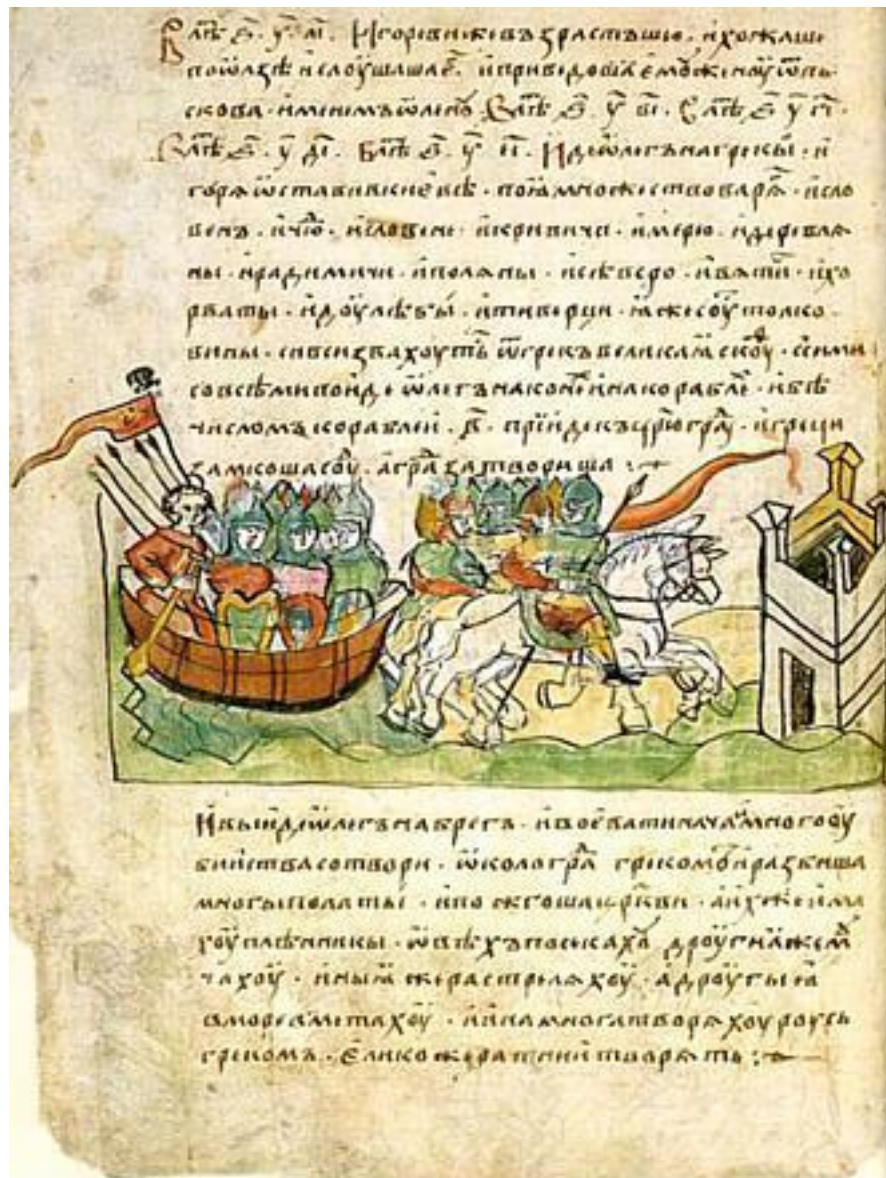 В лѣт҃ ѕ҃. у҃. а҃і. Игореви же възрастъшю. и хожаше
по Ѡлзѣ и слоушаше е҃г. и приведоша ему женоу ѿ Пь
скова. именемъ Ѡленоу. В лѣт҃ ѕ҃ у҃ в҃і. В лѣт҃ ѕ҃ у҃ г҃і.
В лѣт҃ ѕ҃. у҃ д҃і. В лѣт҃ ѕ҃. у҃ е҃і. Иде Ѡлегъ на Грекы. И
горя ѡставивъ Киевѣ. поя множество варяг. и сло
венъ. и чюд. и словене. и кривичи. и мерю. и деревля
ны. и радимичи. и поляны. и сѣверо. и вятичи. и хо
рваты. и доулѣбы. и тиверци. яже соуть толко
вины. си вси звахоуть ѿ Грекъ Великая скоуф. с сими
со всѣми поиде Ѡлегъ на конех и на кораблех. и бѣ
числомъ кораблей. в҃. прииде къ Ц҃рюграду. и Греци
замкоша Соуд. а град затвориша :~
И выиде Ѡлегъ на брегъ. и воевати нача. и много оу
бииства сотвори. ѡколо град Грекомъ. и разбиша
многы полаты. и пожгоша ц҃ркви. а ихже има
хоу плѣнникы. ѡвѣхъ посѣкахоу дроугия же моу
чахоу. иныя же растреляхоу. а дроугыя
въ море вметахоу. и ина многа творяхоу Роусь
Грекомъ. елико же ратнии творять :~